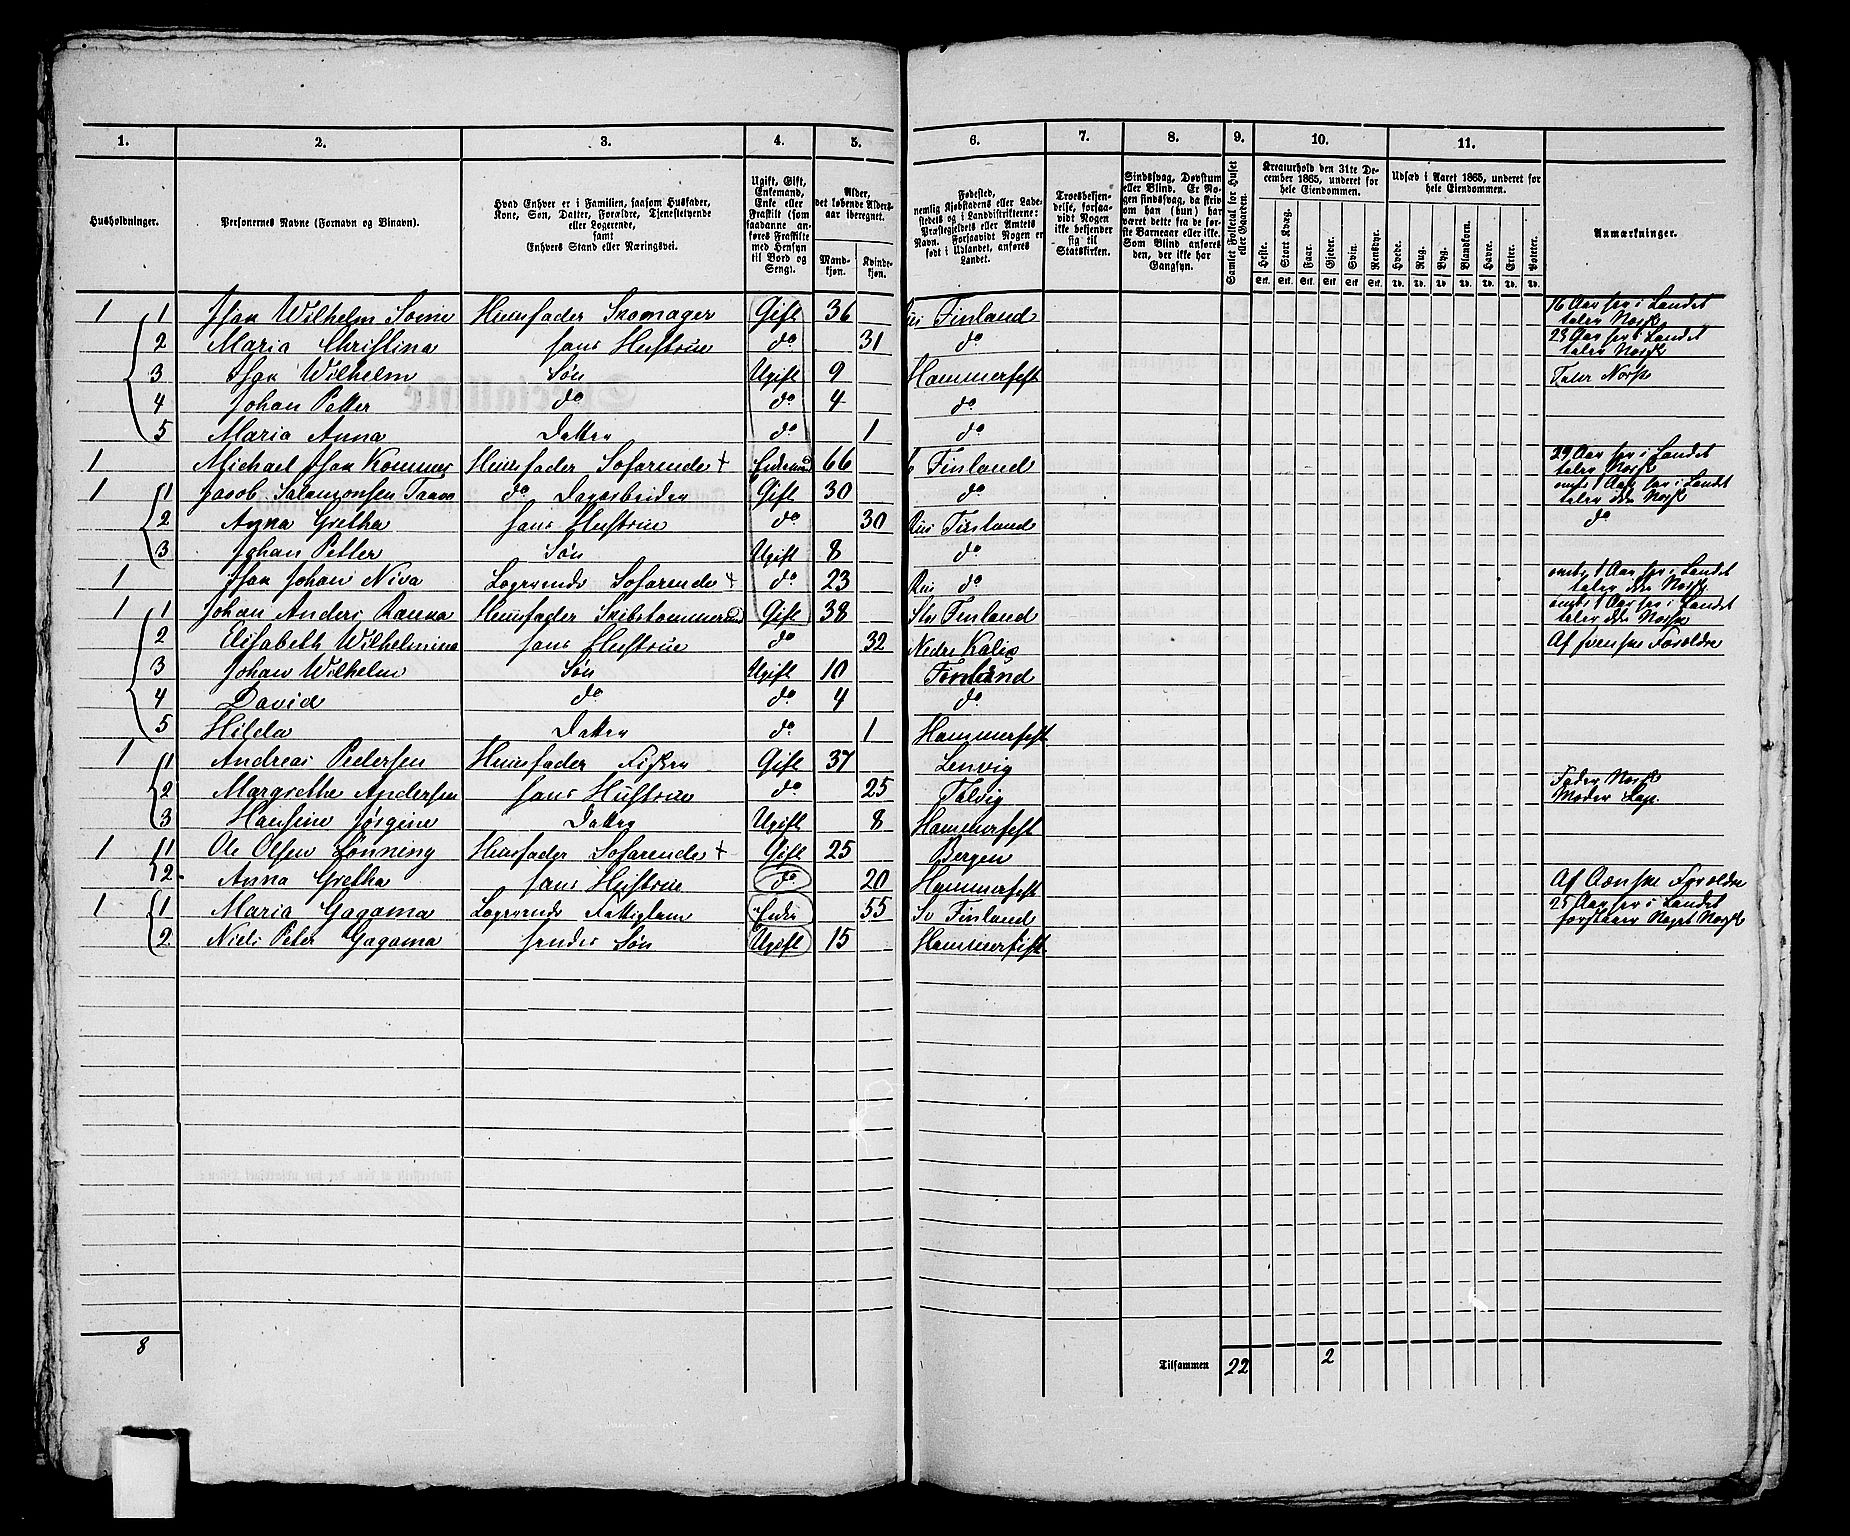 1. 2. 3. 4. 5. 6. 7. 8. 9. 10. 11.
Husholdninger.
Personernes Navne (Fornavn og Binavn).
Hvad Enhver er i Familien, saasom Husfader, Kone, Søn, Datter, Forældre, Tjenestetyende eller Logerende, samt Enhvers Stand eller Næringsvei.
Ugift, Gift, Enkemand, Enke eller Fraskilt (som saadanne anføres Fraskilte med Hensyn til Bord og Seng).
Alder, det løbende Aldersaar iberegnet.
Mandkjøn. Kvindekjøn.
Fødested, nemlig Kjøbstadens eller Ladestedets og i Landdistrikterne: Præstegjeldets eller Amtets Navn. Forsaavidt Nogen er født i Udlandet, anføres Landet.
Troesbekjendelse, forsaavidt Nogen ikke bekjender sig til Statskirken.
Sindssvag, Døvstum eller Blind. Er Nogen sindssvag, da skriv om han (hun) har været dette fra de første Barneaar eller ikke. Som Blind anføres den, der ikke har Gangsyn.
Samlet Folketal for Huset eller Gaarden.
Kreaturhold den 31te December 1865, underet for hele Eiendommen.
Heste. Stort Kvæg. Faar. Gjeder. Svin. Rensdyr.
Stk. Stk. Stk. Stk. Stk. Stk.
Udsæd i Aaret 1865, underet for hele Eiendommen.
Hvede. Rug. Byg. Blandkorn. Havre. Erter. Poteter.
Td. Td. Td. Td. Td. Td. Td.
Anmærkninger.
1 1 Isak Wilhelm Huusfader Skomager Gift 36 Finland 16 Aar her i Landet taler Norsk
2 Maria Christina hans Hustrue do 31 do 23 Aar her i Landet taler Norsk
3 Isak Wilhelm Søn Ugift 9 Hammerfest Taler Norsk
4 Johan Petter do do 4 do
5 Maria Anna Datter do 1 do
1 Michael Isak Huusfader Søfarende + Enkemand 66 Finland 29 Aar her i Landet taler Norsk
1 1 Jacob Salamonsen do Dagarbeider Gift 30 do omtr 1 Aar her i Landet taler ikke Norsk
2 Anna Gretha hans Hustrue do 30 Finland do
3 Johan Petter Søn Ugift 8 do
1 Isak Johan Niva Logerende Søfarende + do 23 do omtr 1 Aar her i Landet taler ikke Norsk
1 1 Johan Anders Ranna Huusfader Skibstømmermand Gift 38 Finland omtr 1 Aar her i Landet taler ikke Norsk
2 Elisabeth Wilhelmina hans Hustrue do 32 Nedre Kalix Af svenske Forældre
3 Johan Wilhelm Søn Ugift 10
4 David do do 4 do
5 Hilda Datter do 1 Hammerfest
1 1 Andreas Pedersen Huusfader Fisker Gift 37 Lenvig
2 Margrethe Andersen hans Hustrue do 25 Talvig Fader Norsk Moder Lap.
3 Hansine Jørgine Datter Ugift 8 Hammerfest
1 1 Ole Olsen Lønning Huusfader Søfarende + Gift 25 Bergen
2. Anna Gretha hans Hustrue do 20 Hammerfest Af Qvænske Forældre
1 1 Maria Gagama Logerende Fattiglem Enke 55 Finland 25 Aar her i Landet forstaaer Noget Norsk
2 Niels Peter Gagama hendes Søn Ugift 15 Hammerfest
8 Tilsammen 22 2